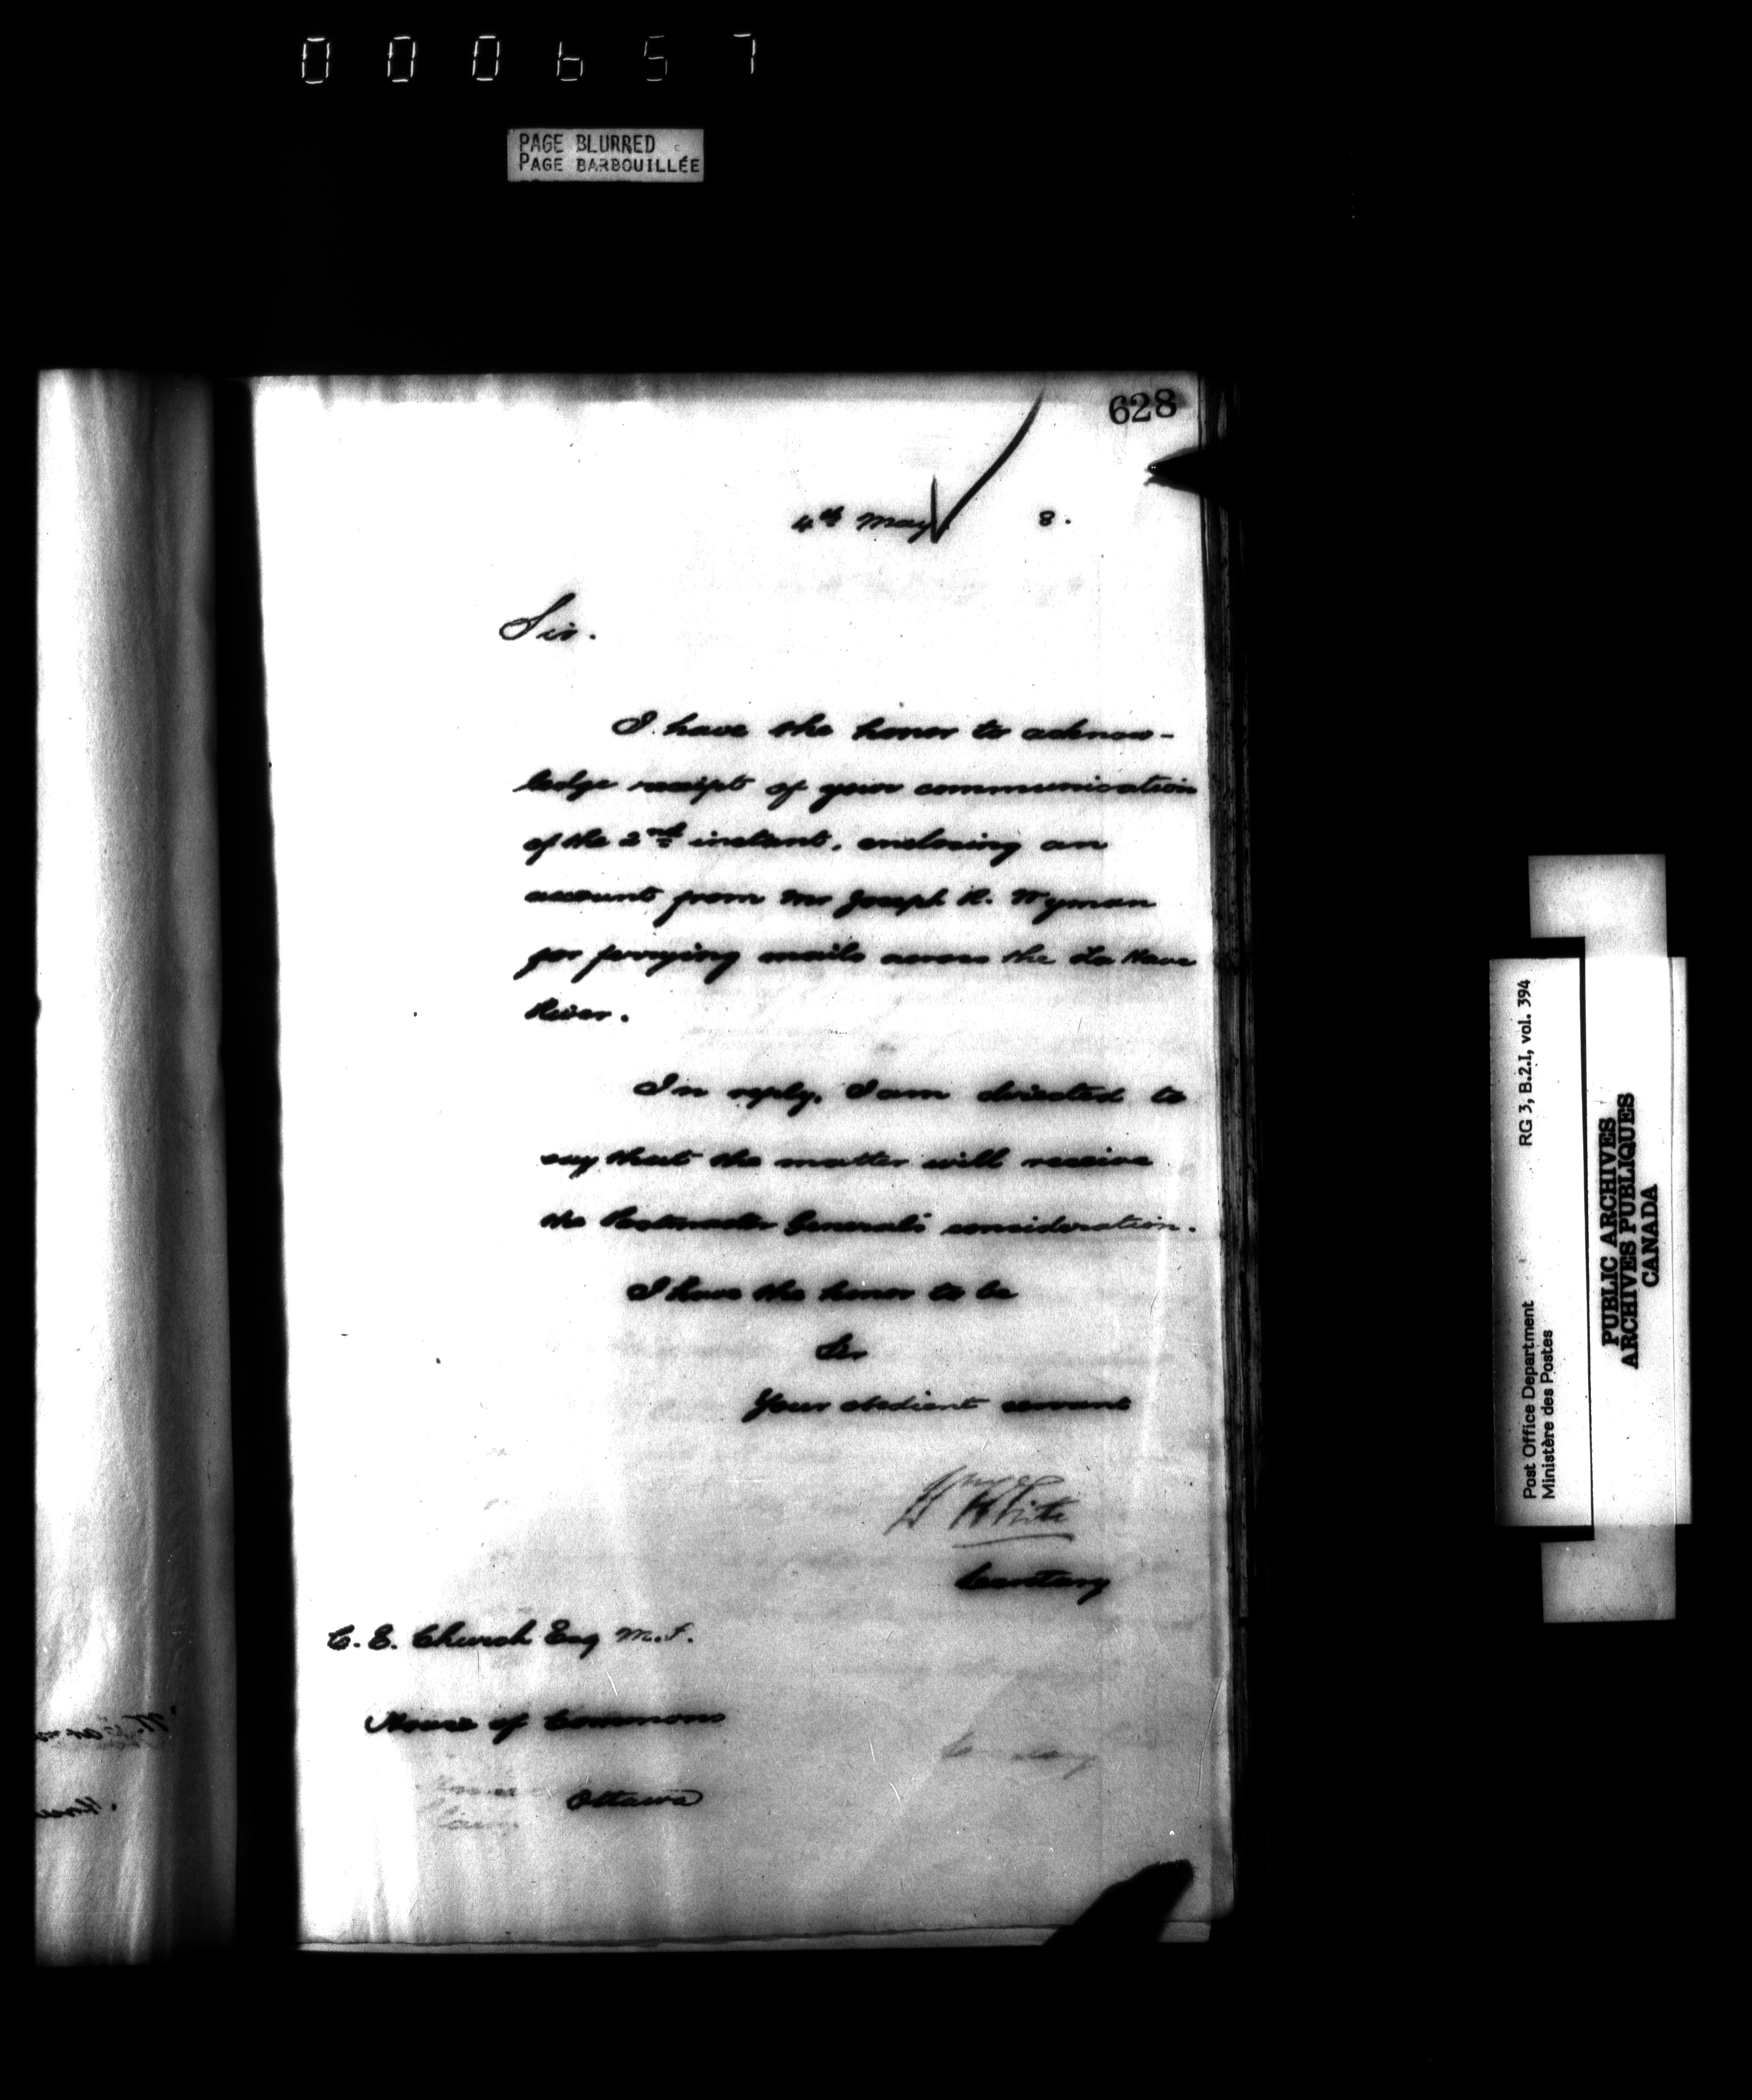 000657
PAGE BLURRED
PAGE BARBOUILLÉE
628
4th May 8.
Sir.
I have the honor to acknow-
ledge receipt of your communication
of the 2nd instant, enclosing an
account from Mr Joseph R. Wyman
for ferrying mails across the La Have
River.
In reply, I am directed to
say that the matter will receive
the Postmaster General's consideration.
I have the honor to be
Sir
Your obedient servant
White
Secretary
C. E. Church Esq M.P.
House of Commons
Ottawa
RG 3, B.2.I, vol. 394
Post Office Department
Ministère des Postes
PUBLIC ARCHIVES
ARCHIVES PUBLIQUES
CANADA